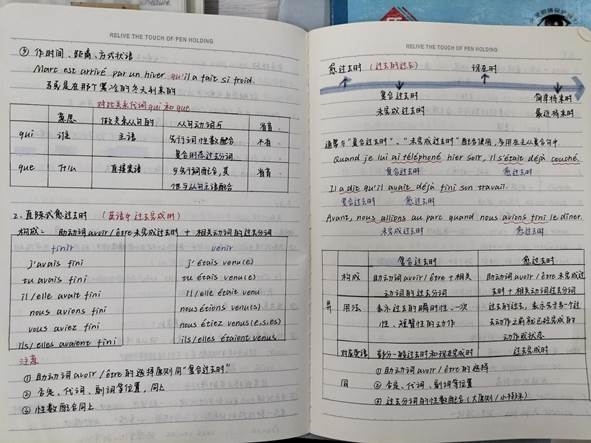 RELIVE THE TOUCH OF PEN HOLDING
③ 作时间、距离、方式状语
Marc est arrivé par un hiver qu'il a fait si froid.
马克是在那个寒冷的冬天到来的
对比关系代词 qui 和 que
意思 做关系从句的 从句动词与 省音
qui 主语 先行词性数配合 不省
复合时态过去分词
que 直接宾语 与先行词配合,其 省音
他与从句主语配合
2. 直陈式愈过去时 (英语中过去完成时)
构成: 助动词 avoir / être 未完成过去时 + 相关动词的过去分词
finir venir
j'avais fini j'étais venu(e)
tu avais fini tu étais venu(e)
il / elle avait fini il / elle était venu
nous avions fini nous étions venu(s)
vous aviez fini vous étiez venu(e.s.es)
ils/elles avaient fini ils/elles étaient venus
注意
① 助动词 avoir / être 的选择原则同“复合过去时”
② 否定、代词、副词等位置,同上
③ 性数配合同上
RELIVE THE TOUCH OF PEN HOLDING
愈过去时 (过去的过去) 现在时
复合过去时 简单将来时
未完成过去时 最近将来时
通常与“复合过去时”、“未完成过去时”配合使用,多用在主从复合句中
Quand je lui ai téléphoné hier soir, il s'était déjà couché.
复合过去时 愈过去时
Il a dit qu'il avait déjà fini son travail.
复合过去时 愈过去时
Avant, nous allions au parc quand nous avions fini le dîner.
未完成过去时 愈过去时
复合过去时 愈过去时
构成 助动词 avoir / être + 相关 助动词 avoir / être 未完成过
动词的过去分词 去时 + 相关动词过去分词
异 用法 表示过去的瞬时性、一次 过去的过去,表示另一个过
性、短暂性的动作 去动作之前就已经完成的
动作或状态
对应英语 部分一般过去时和现在完成时 过去完成时
① 助动词 avoir / être 的选择
同 ② 否定、代词、副词等位置
③ 过去分词的性数配合 (大原则 / 小特殊)